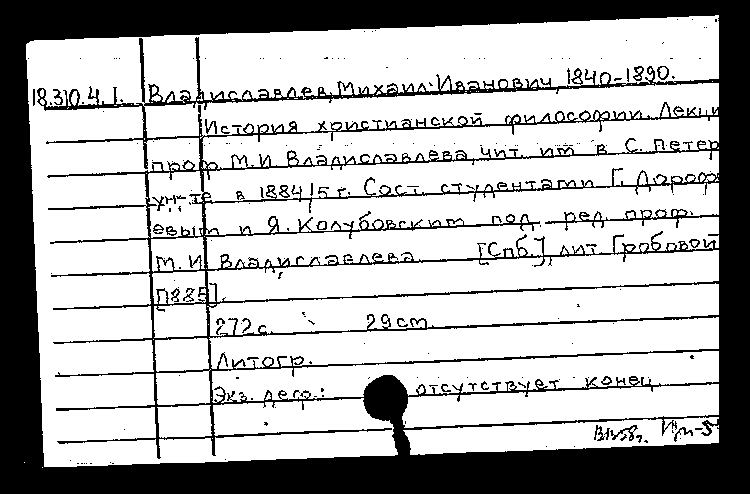 18.310.4.1. Владиславлев, Михаил Иванович, 1840-1890.
История христианской философии. Лекци
проф. М.И. Владиславлева, чит. им в С. Петер
ун-те в 1884/5 г. Сост. студентами Г. Дороф
евым и Я. Колубовским под ред. проф.
М. И. Владиславлева. [Спб.], лит. Гробовой
[1885].
272 с. 29 см.
Литогр.
Экз. деф.: отсутствует конец